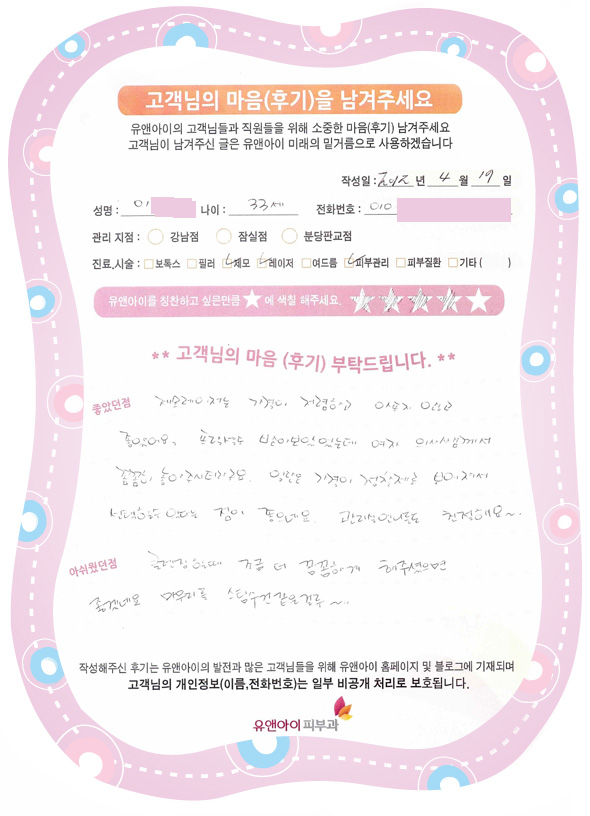 고객님의 마음(후기)을 남겨주세요
유앤아이의 고객님들과 직원들을 위해 소중한 마음(후기) 남겨주세요
고객님이 남겨주신 글은 유앤아이 미래의 밑거름으로 사용하겠습니다
작성일 : 2012 년 4 월 19 일
성명 : 이 나이 : 33세 전화번호 : 010
관리 지점 : 강남점 잠실점 분당판교점
진료,시술 : 보톡스 필러 제모 레이저 여드름 피부관리 피부질환 기타 ( )
유앤아이를 칭찬하고 싶은만큼 ★ 에 색칠 해주세요.
** 고객님의 마음 (후기) 부탁드립니다. **
좋았던점 제모레이저는 가격이 저렴하고 아프지 않고
좋았어요. 받아보았는데 여자 의사쌤께서
꼼꼼히 놓아주시더라구요. 가격이 정찰제로 보여져서
선택할수 있다는 점이 좋았네요. 관리사언니들도 친절해요~
아쉬웠던점 클렌징할때 조금 더 꼼꼼하게 해주셨으면
좋겠네요 마무리로 스팀수건같은걸루~.
작성해주신 후기는 유앤아이의 발전과 많은 고객님들을 위해 유앤아이 홈페이지 및 블로그에 기재되며
고객님의 개인정보(이름,전화번호)는 일부 비공개 처리로 보호됩니다.
유앤아이 피부과